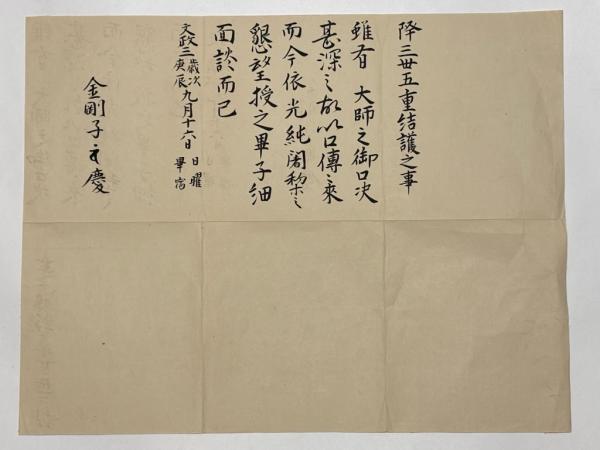 降三世五重結護之事
雖有 大師之御口决
甚深之故以口傳之來
而今依光純闍梨之
懇望授之畢子細
面談而已
文政三歳次庚辰九月十六日 日曜畢宿
金剛子 慶